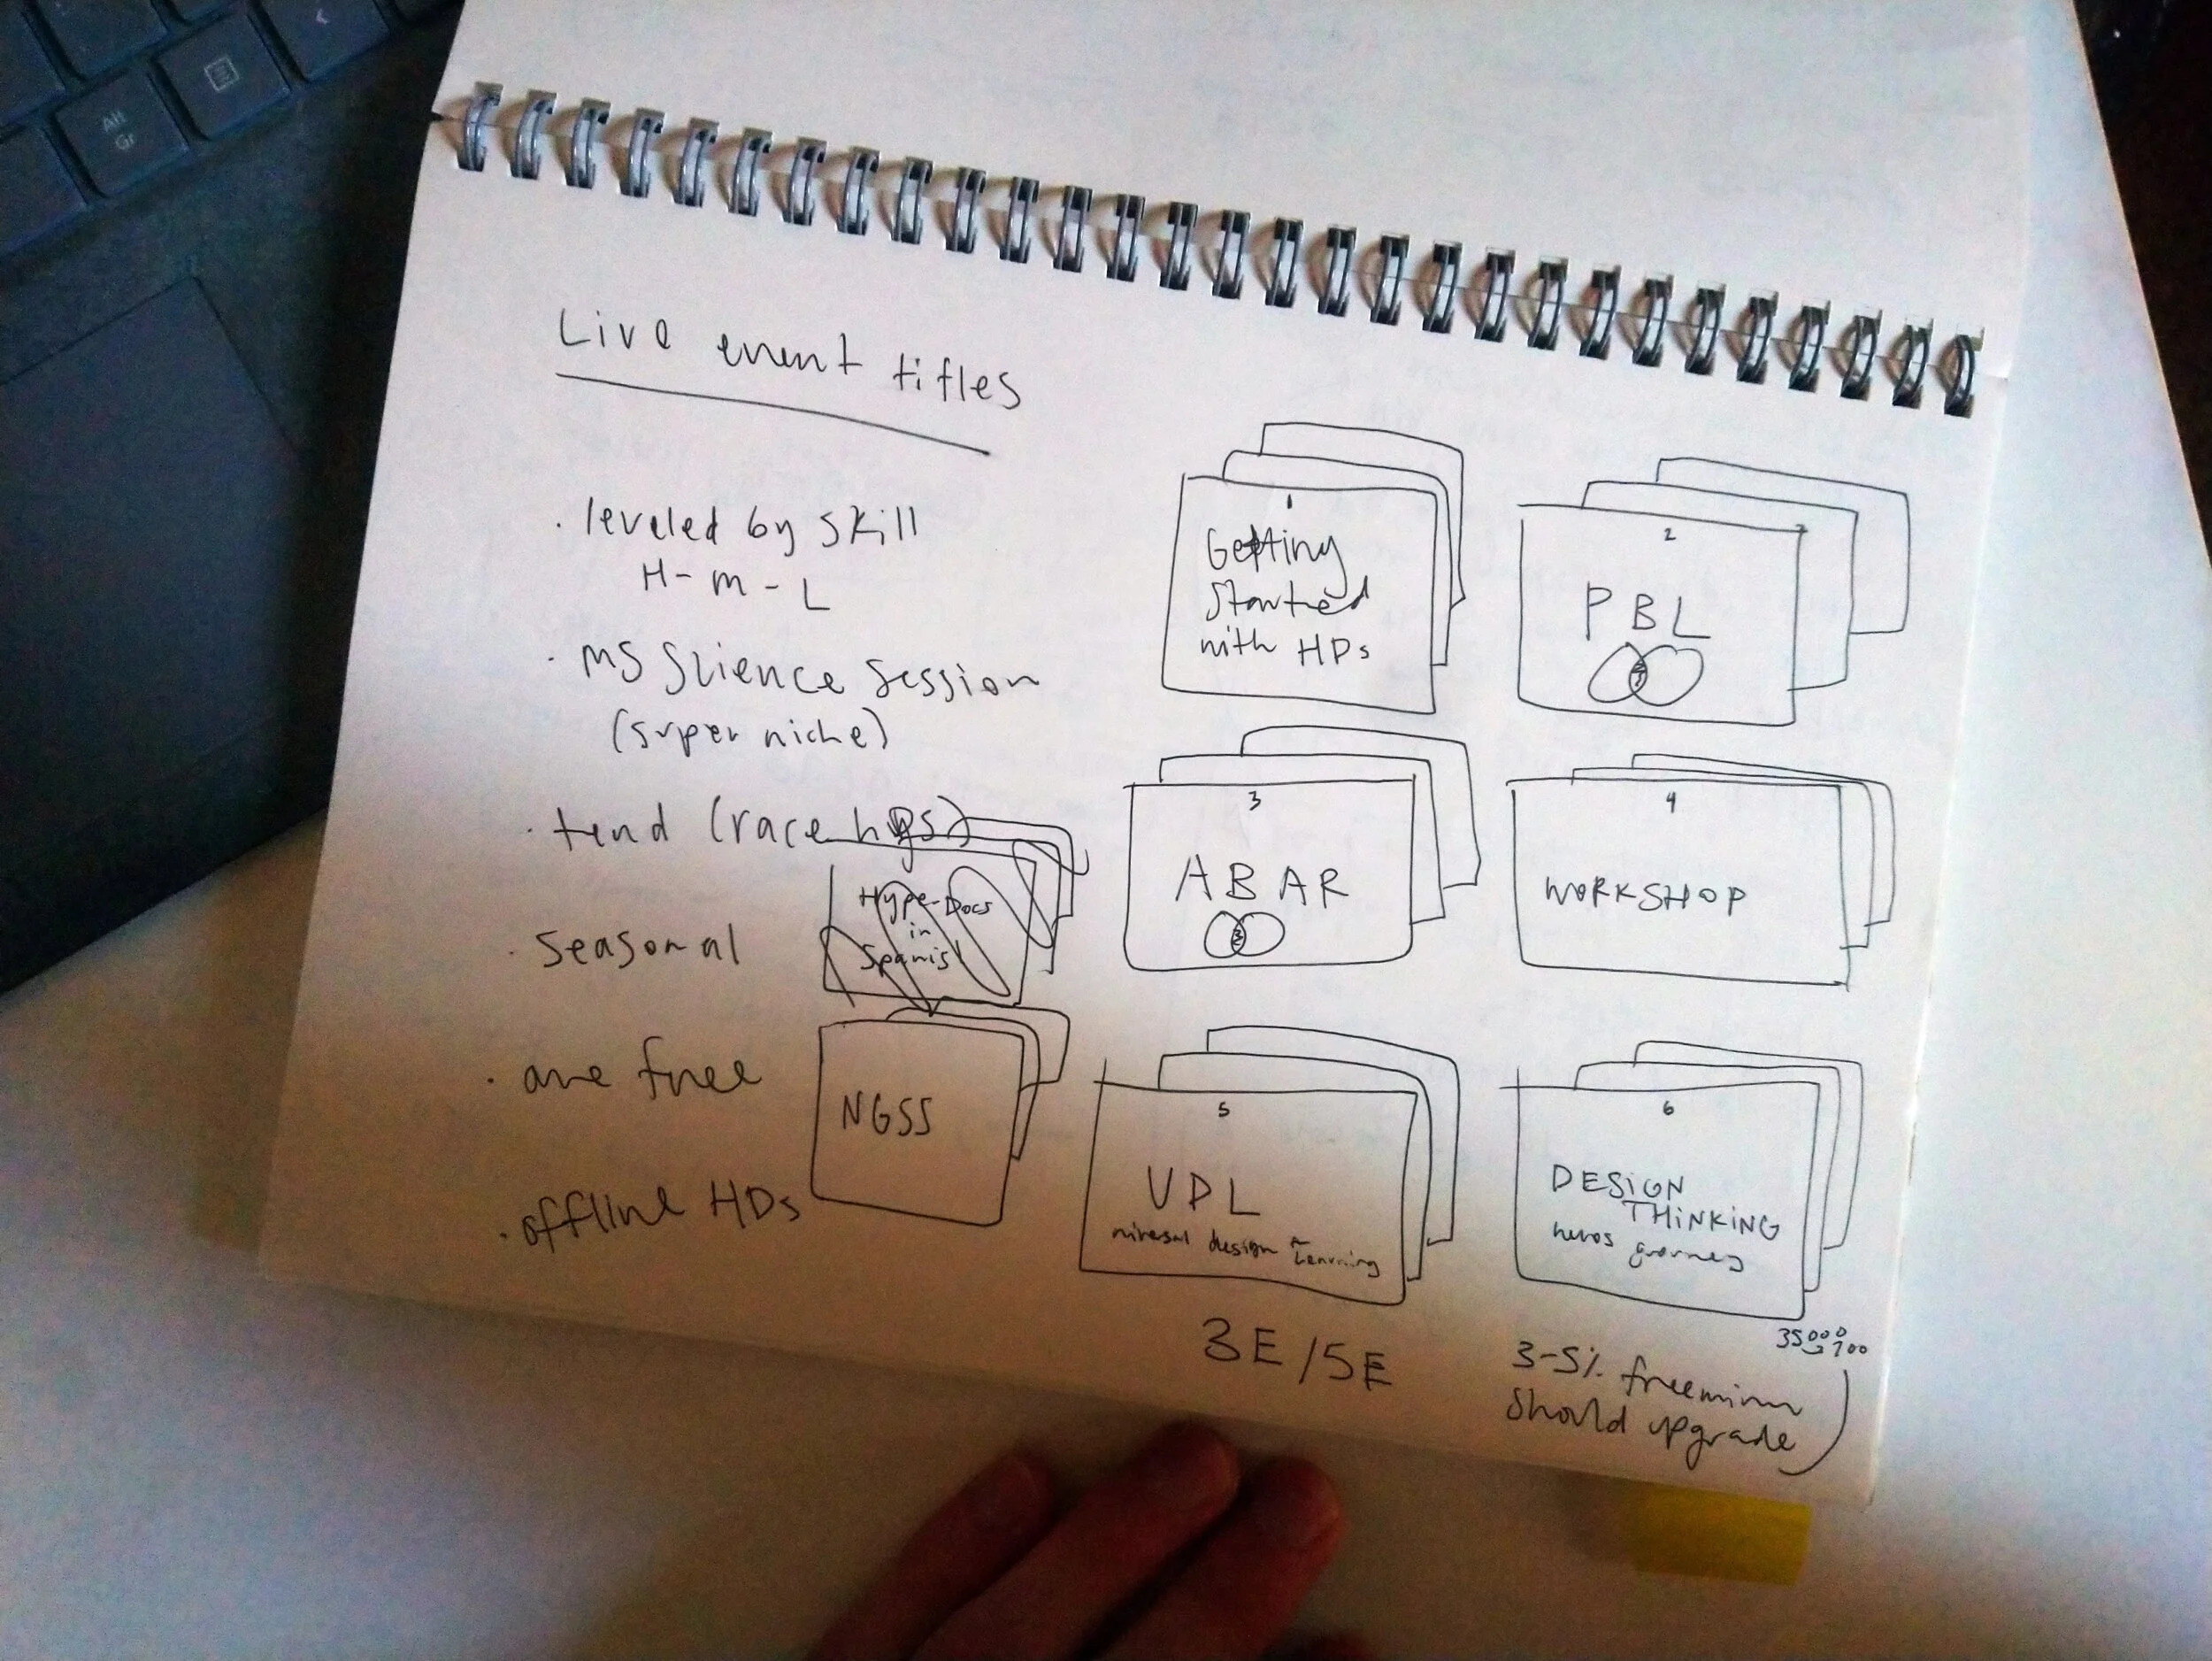 Alt
Gr
Live event titles
· leveled by skill
H - M - L
· MS Science Session
(super niche)
· tend (race
· seasonal
· are free
· offline HDs
Hype-Docs
in
Spanis
NGSS
1
Getting
Started
with HDs
2
PBL
3
ABAR
4
WORKSHOP
5
UDL
niversal design Learning
6
DESIGN
THiNKiNG
heros journey
3E/5E
35000
700
3-5% freemium
should upgrade